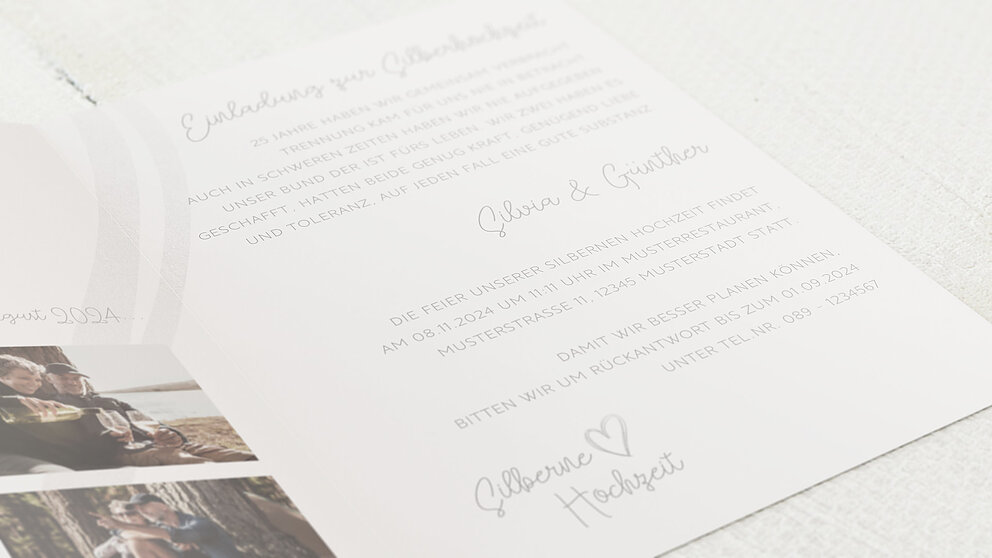 Einladung zur Silberhochzeit
25 JAHRE HABEN WIR GEMEINSAM VERBRACHT
TRENNUNG KAM FÜR UNS NIE IN BETRACHT
AUCH IN SCHWEREN ZEITEN HABEN WIR NIE AUFGEGEBEN
UNSER BUND DER IST FÜRS LEBEN. WIR ZWEI HABEN ES
GESCHAFFT, HATTEN BEIDE GENUG KRAFT, GENÜGEND LIEBE
UND TOLERANZ, AUF JEDEN FALL EINE GUTE SUBSTANZ
Silvia & Günther
DIE FEIER UNSERER SILBERNEN HOCHZEIT FINDET
AM 08.11.2024 UM 11:11 UHR IM MUSTERRESTAURANT,
MUSTERSTRASSE 11, 12345 MUSTERSTADT STATT.
DAMIT WIR BESSER PLANEN KÖNNEN,
BITTEN WIR UM RÜCKANTWORT BIS ZUM 01.09.2024
UNTER TEL.NR. 089 - 1234567
Silberne
Hochzeit
2024...